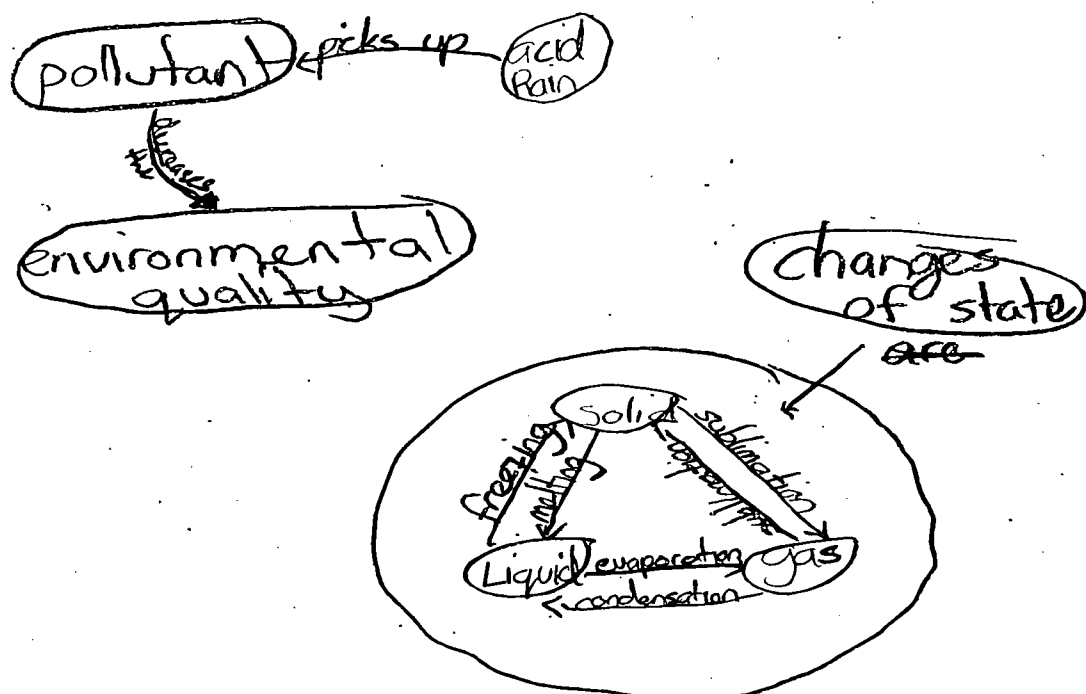 pollutant
picks up
acid
Rain
the
environmental
quality
changes
of state
are
Solid
freezing
melting
sublimation
Liquid
evaporation
gas
condensation